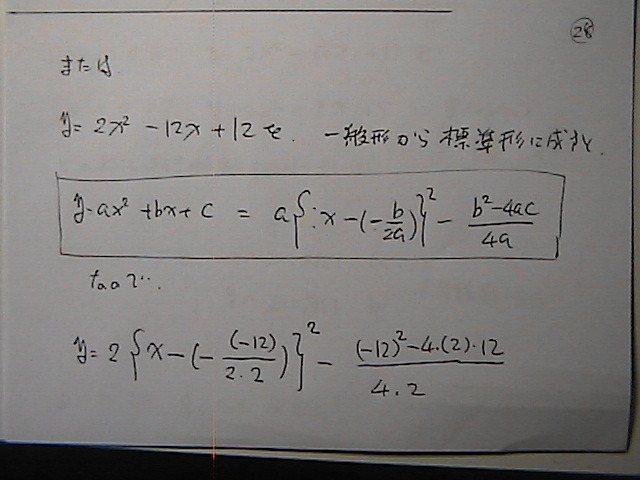 28
または
y = 2x² - 12x + 12を. 一般形から標準形に成すと.
y = ax² + bx + c = a{x - (-b/2a)}² - (b² - 4ac)/4a
なので…
y = 2{x - (-(-12)/2・2)}² - ((-12)² - 4・(2)・12)/4・2